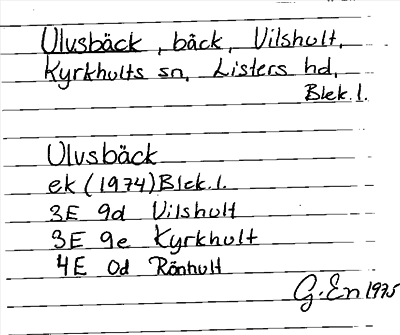 Ulvsbäck, bäck, Vilshult,
Kyrkhults sn, Listers hd,
Blek. l.
Ulvsbäck
ek (1974) Blek. l.
3E 9d Vilshult
3E 9e Kyrkhult
4E 0d Rönhult
G. En 1975